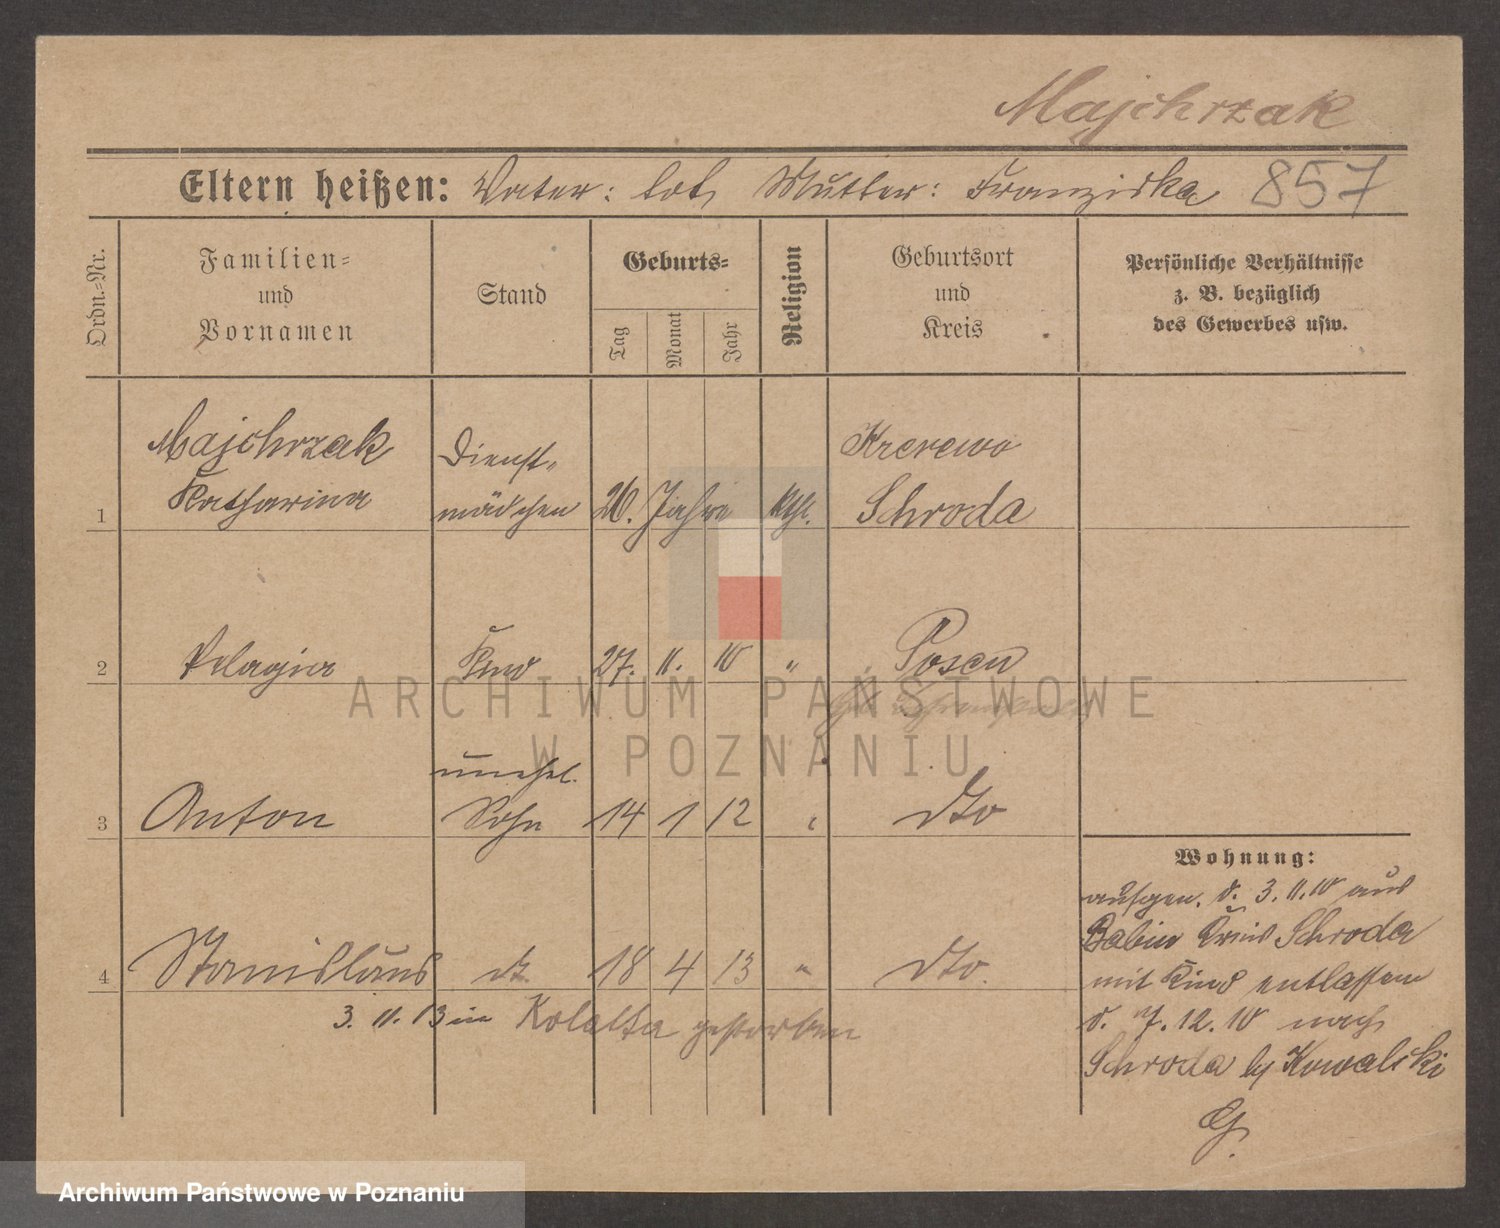 Majchrzak
Eltern heißen: Vater: tot, Mutter: Franziska 857
Ordn.-Nr.
Familien-
und
Vornamen
Stand
Geburts-
Tag
Monat
Jahr
Religion
Geburtsort
und
Kreis
Persönliche Verhältnisse
z. B. bezüglich
des Gewerbes usw.
Majchrzak Dienst-
1 Katharina mädchen 26. Jahre kth. Schroda
2 Pelagia Kind 27. 11. 10 " Posen
unehel.
3 Anton Sohn 14 1 12 " dto
4 Stanislaus dt. 18 4 13 " dto.
3. 11. 13 in Kolatka gestorben
Wohnung:
aufgen. d. 3. 11. 10 aus
Babin Kreis Schroda
mit Kind entlassen
d. 7. 12. 10 nach
Schroda bj Kowalski
G.
ARCHIWUM PAŃSTWOWE
W POZNANIU
Archiwum Państwowe w Poznaniu